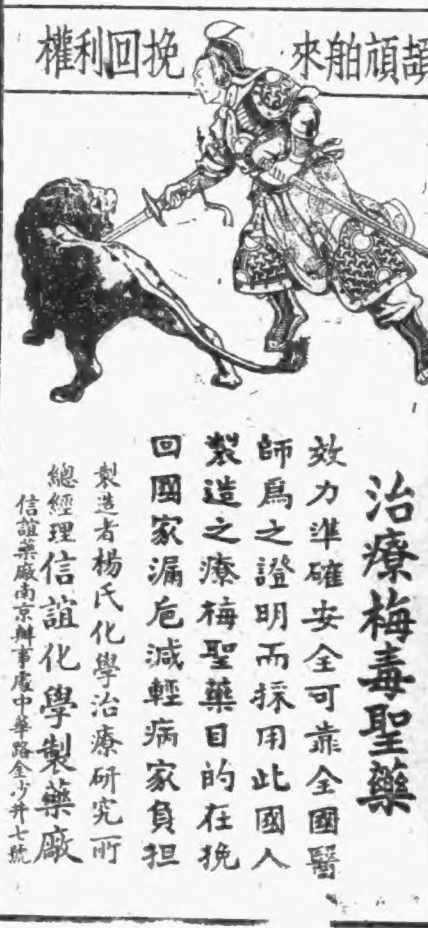 頡頏舶來 挽回利權
治療梅毒聖藥
效力準確安全可靠全國醫
師爲之證明而採用此國人
製造之療梅聖藥目的在挽
回國家漏卮減輕病家負担
製造者楊氏化學治療研究所
總經理信誼化學製藥廠
信誼藥廠南京辦事處中華路全少井七號